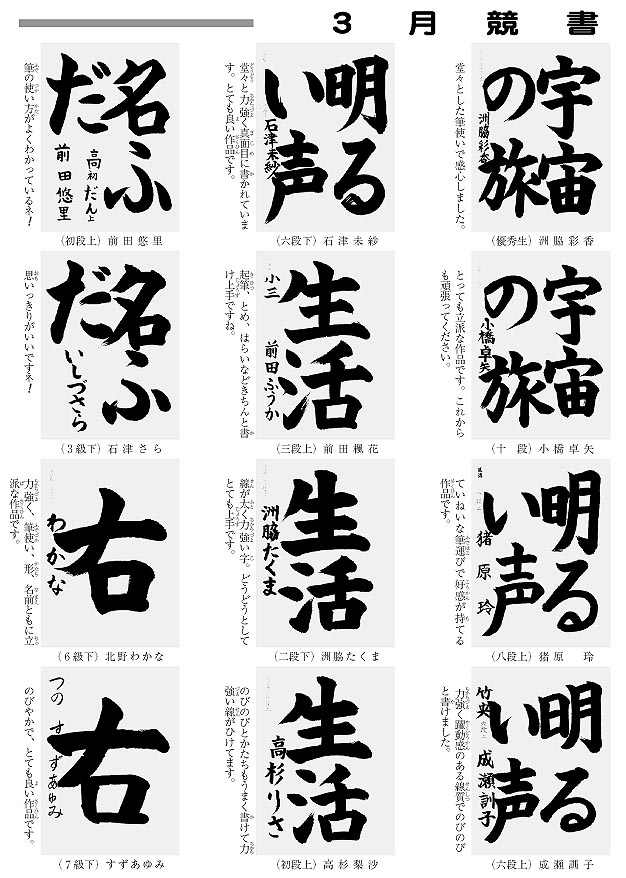 3月競書
宇宙
の旅
洲脇彩香
堂々とした筆使いで感心しました。
（優秀生）洲脇彩香
宇宙
の旅
小橋卓矢
とっても立派な作品です。これから
も頑張ってください。
（十　段）小橋卓矢
明る
い声
猪原玲
ていねいな筆運びで好感が持てる
作品です。
（八段上）猪原　玲
明る
い声
竹央
成瀬訓子
力強く躍動感のある線質でのびのび
と書けました。
（六段上）成瀬訓子
明る
い声
石津未紗
堂々と力強く真面目に書かれていま
す。とても良い作品です。
（六段下）石津未紗
生活
小三
前田ふうか
起筆、とめ、はらいなどきちんと書
け上手ですね。
（三段上）前田楓花
生活
洲脇たくま
線が太く力強い字。どうどうとして
とても上手です。
（二段下）洲脇たくま
生活
高杉りさ
のびのびとかたちもうまく書けて力
強い線がひけてます。
（初段上）高杉梨沙
名ふ
だ
高初だん上
前田悠里
筆の使い方がよくわかっているネ！
（初段上）前田悠里
名ふ
だ
いしづさら
思いっきりがいいですネ！
（3級下）石津さら
右
わかな
力強く、筆使い、形、名前ともに立
派な作品です。
（6級下）北野わかな
右
つの　すずあゆみ
のびやかで、とても良い作品です。
（7級下）すずあゆみ